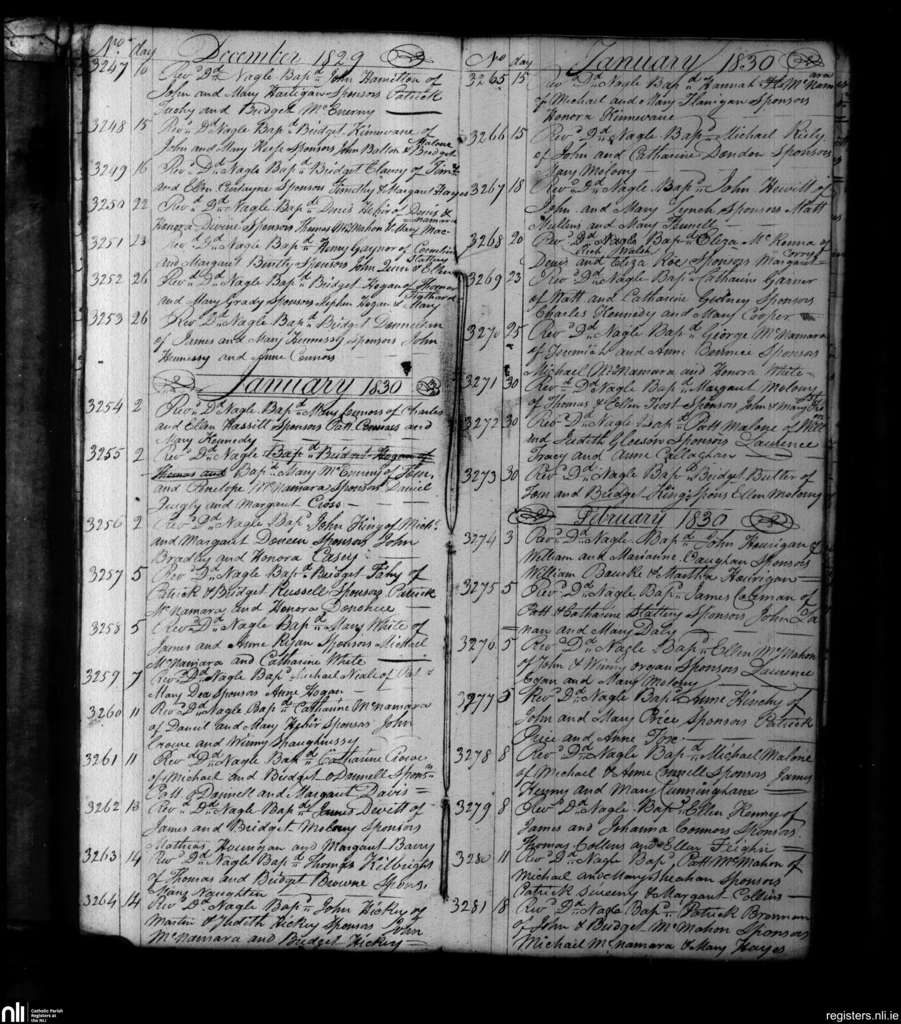 No day December 1829
3247 10 Revd Dd Nagle Bapd John Hamilton of
John and Mary Hartigan Sponsors Patrick
and Bridget McEnerny
3248 15 Revd Dd Nagle Bapd Bridget Kinnevane of
John and Mary Keefe Sponsors John Bolton & Bridget Malone
3249 16 Revd Dd Nagle Bapd Bridget Clancy of Timy
and Ellen Sponsors Timothy & Margaret Hayes
3250 22 Revd Dd Nagle Bapd Denis Hehir of Denis &
Honora Devine Sponsors Thomas McMahon & Mary Macnamara
3251 23 Revd Dd Nagle Bapd Henry Gaynor of Cornelius
and Margaret Bently Sponsors John & Ellen Slattery
3252 26 Revd Dd Nagle Bapd Bridget Hogan of Thomas
and Mary Grady Sponsors Stephen Hogan & Mary
3253 26 Revd Dd Nagle Bapd Bridget Donnellan
of James and Mary Hennessy Sponsors John
Hennessy and Anne Connors
January 1830
3254 2 Revd Dd Nagle Bapd Mary Connors of Charles
and Ellen Hassitt Sponsors Patt Connors and
Mary Kennedy
3255 2 Revd Dd Nagle Bapd Bridget Hogan of
Thomas and Bapd Mary McEnerny of Tom
and Penelope McNamara Sponsors Daniel
Quigly and Margaret Cross
3256 2 Revd Dd Nagle Bapd John King of Michl
and Margaret Doneen Sponsors John
Bradley and Honora Casey
3257 5 Revd Dd Nagle Bapd Bridget Fahy of
Patrick & Bridget Russell Sponsors Patrick
McNamara and Honora Donohue
3258 5 Revd Dd Nagle Bapd Mary White of
James and Anne Ryan Sponsors Michael
McNamara and Catharine White
3259 7 Revd Dd Nagle Bapd Michael Neale of Pat &
Mary Dea Sponsors Anne Hogan
3260 11 Revd Dd Nagle Bapd Catharine McNamara
of Daniel and Mary Hehir Sponsors John
Crowe and Winny Shaughnissy
3261 11 Revd Dd Nagle Bapd Catharine Crowe
of Michael and Bridget O'Donnell Sponsrs
Patt O'Donnell and Margaret Davis
3262 13 Revd Dd Nagle Bapd James Devitt of
James and Bridget Molony Sponsors
Mathias Hourigan and Margaret Barry
3263 14 Revd Dd Nagle Bapd Thomas Kilbright
of Thomas and Bridget Browne Spons.
Mary Naughten
3264 14 Revd Dd Nagle Bapd John Hickey of
Martin & Judith Hickey Sponsors John
McNamara and Bridget Hickey
No day January 1830
3265 15 Revd Dd Nagle Bapd Hannah McNamara
of Michael and Mary Flanigan Sponsors
Honora Kinnevane
3266 15 Revd Dd Nagle Bapd Michael Riely
of John and Catharine Dondon Sponsors
Mary Molony
3267 18 Revd Dd Nagle Bapd John Hewitt of
John and Mary Lynch Sponsors Matt
Mullins and Mary
3268 20 Revd Dd Nagle Bapd Eliza McKenna of
Denis and Eliza Roe Sponsors Margaret
3269 23 Revd Dd Nagle Bapd Catharine Garner
of Matt and Catharine Sponsors
Charles Kennedy and Mary Cooper
3270 25 Revd Dd Nagle Bapd George McNamara
of and Anne Sponsors
Michael McNamara and Honora White
3271 30 Revd Dd Nagle Bapd Margaret Molony
of Thomas & Ellen Frost Sponsors John & Mary
3272 30 Revd Dd Nagle Bapd Patt Malone of Will
and Judith Gleeson Sponsors Laurence
Tracy and Anne Callaghan
3273 30 Revd Dd Nagle Bapd Bridget Butler of
Tom and Bridget King Spons Ellen Molony
February 1830
3274 3 Revd Dd Nagle Bapd John Hourigan of
William and Marianne Vaughan Sponsors
William Bourke & Martha Hourigan
3275 5 Revd Dd Nagle Bapd James Coleman of
Patt & Catharine Slattery Sponsors John La
nan and Mary Daly
3276 5 Revd Dd Nagle Bapd Ellen McMahon
of John & Winny Sponsors Laurence
and Mary Molony
3277 5 Revd Dd Nagle Bapd Anne Hinchy of
John and Mary Price Sponsors Patrick
Price and Anne
3278 8 Revd Dd Nagle Bapd Michael Malone
of Michael & Anne Connell Sponsors James
and Mary Cunningham
3279 8 Revd Dd Nagle Bapd Ellen Henry of
James and Johanna Connors Sponsors
Thomas Collins and Ellen
3280 11 Revd Dd Nagle Bapd Patt McMahon of
Michael and Mary Sheahan Sponsors
Patrick Sweeny & Margaret Collins
3281 18 Revd Dd Nagle Bapd Patrick Brennan
of John & Bridget McMahon Sponsors
Michael McNamara & Mary Hayes
nli Catholic Parish
Registers at
the NLI
registers.nli.ie